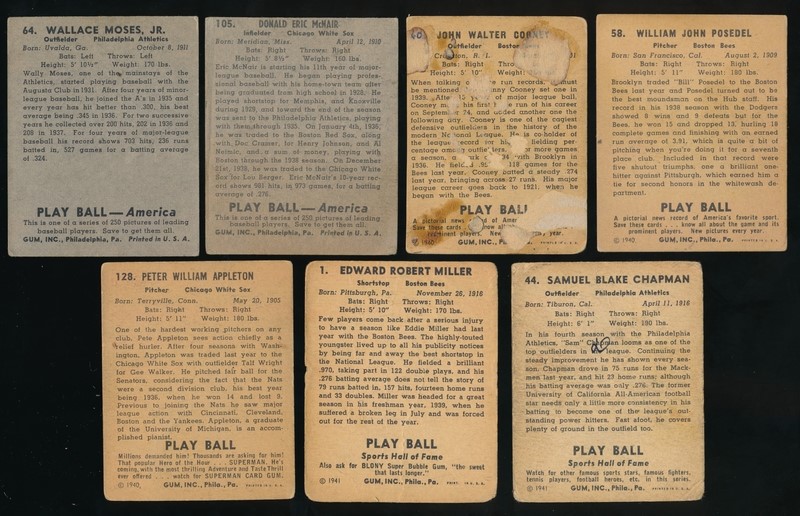 64. WALLACE MOSES, JR.
Outfielder Philadelphia Athletics
Born: Uvalda, Ga. October 8, 1911
Bats: Left Throws: Left
Height: 5' 10½" Weight: 170 lbs.
Wally Moses, one of the mainstays of the
Athletics, started playing baseball with the
Augusta Club in 1931. After four years of minor-
league baseball, he joined the A's in 1935 and
every year has hit better than .300, his best
average being .345 in 1936. For two successive
years he collected over 200 hits, 202 in 1936 and
208 in 1937. For four years of major-league
baseball his record shows 703 hits, 236 runs
batted in, 527 games for a batting average
of .324.
PLAY BALL—America
This is one of a series of 250 pictures of leading
baseball players. Save to get them all.
GUM, INC., Philadelphia, Pa. Printed in U. S. A.
105. DONALD ERIC McNAIR
Infielder Chicago White Sox
Born: Meridian, Miss. April 12, 1910
Bats: Right Throws: Right
Height: 5' 8½" Weight: 160 lbs.
Eric McNair is starting his 11th year of major-
league baseball. He began playing profes-
sional baseball with his home-town team after
being graduated from high school in 1928. He
played shortstop for Memphis, and Knoxville
during 1929, and toward the end of the season
was sent to the Philadelphia Athletics, playing
with them through 1935. On January 4th, 1936,
he was traded to the Boston Red Sox, along
with Doc Cramer, for Henry Johnson, and Al
Neimic, and a sum of money, playing with
Boston through the 1938 season. On December
21st, 1938, he was traded to the Chicago White
Sox for Leo Berger. Eric McNair's 10-year rec-
ord shows 981 hits, in 973 games, for a batting
average of .276.
PLAY BALL—America
This is one of a series of 250 pictures of leading
baseball players. Save to get them all.
GUM, INC., Philadelphia, Pa. Printed in U. S. A.
60. JOHN WALTER COONEY
R. I.
Bats: Right
Height: 5' 10"
When talking
be mentioned Cooney set one in
1939. After major league ball,
Cooney his first run of his career
on and added another one
following day. Cooney is one of the nagiest
defensive outfielders in the history of the
modern National League. He is co-holder of
the league record fielding per-
centage or more games
a season, with Brooklyn in
1936. He 118 games for the
Bees last year. Cooney batted a steady .274
last year, bringing across 27 runs. His major
league career goes back to 1921, when he
began with the Braves.
PLAY BALL
A pictorial news
Save these cards know all
prominent players. New year.
© 1940 GUM, INC., Phila., Pa.
58. WILLIAM JOHN POSEDEL
Pitcher Boston Bees
Born: San Francisco, Cal. August 2, 1909
Bats: Right Throws: Right
Height: 5' 11" Weight: 180 lbs.
Brooklyn traded "Bill" Posedel to the Boston
Bees last year and Posedel turned out to be
the best moundsman on the Hub staff. His
record in his 1938 season with the Dodgers
showed 8 wins and 9 defeats but for the
Bees, he won 15 and dropped 13, hurling 18
complete games and finishing with an earned
run average of 3.91, which is quite a bit of
pitching when you're doing it for a seventh
place club. Included in that record were
five shutout triumphs, one a brilliant one-
hitter against Pittsburgh, which earned him a
tie for second honors in the whitewash de-
partment.
PLAY BALL
A pictorial news record of America's favorite sport.
Save these cards . . . know all about the game and its
prominent players. New pictures every year.
© 1940 GUM, INC., Phila., Pa. PRINTED IN U. S. A.
128. PETER WILLIAM APPLETON
Pitcher Chicago White Sox
Born: Terryville, Conn. May 20, 1905
Bats: Right Throws: Right
Height: 5' 11" Weight: 180 lbs.
One of the hardest working pitchers on any
club, Pete Appleton sees action chiefly as a
relief hurler. After four seasons with Wash-
ington, Appleton was traded last year to the
Chicago White Sox with outfielder Taft Wright
for Gee Walker. He pitched fair ball for the
Senators, considering the fact that the Nats
were a second division club, his best year
being 1936, when he won 14 and lost 9.
Previous to joining the Nats he saw major
league action with Cincinnati, Cleveland,
Boston and the Yankees. Appleton, a graduate
of the University of Michigan, is an accom-
plished pianist.
PLAY BALL
Millions demanded him! Thousands are asking for him!
That popular Hero of the Hour . . . SUPERMAN. He's
coming, with the most thrilling Adventure and Taste Thrill
ever offered . . . watch for SUPERMAN CARD GUM.
© 1940, GUM, INC., Phila., Pa. PRINTED IN U. S. A.
1. EDWARD ROBERT MILLER
Shortstop Boston Bees
Born: Pittsburgh, Pa. November 26, 1916
Bats: Right Throws: Right
Height: 5' 10" Weight: 170 lbs.
Few players come back after a serious injury
to have a season like Eddie Miller had last
year with the Boston Bees. The highly-touted
youngster lived up to all his publicity notices
by being far and away the best shortstop in
the National League. He fielded a brilliant
.970, taking part in 122 double plays, and his
.276 batting average does not tell the story of
79 runs batted in, 157 hits, fourteen home runs
and 33 doubles. Miller was headed for a great
season in his freshman year, 1939, when he
suffered a broken leg in July and was forced
out for the rest of the year.
PLAY BALL
Sports Hall of Fame
Also ask for BLONY Super Bubble Gum, "the sweet
that lasts longer."
© 1941 GUM, INC., Phila., Pa. PRINT. IN U. S. A.
44. SAMUEL BLAKE CHAPMAN
Outfielder Philadelphia Athletics
Born: Tiburon, Cal. April 11, 1916
Bats: Right Throws: Right
Height: 6' 1" Weight: 180 lbs.
In his fourth season with the Philadelphia
Athletics, "Sam" Chapman looms as one of the
top outfielders in league. Continuing the
steady improvement he has shown every sea-
son, Chapman drove in 75 runs for the Mack-
men last year, and hit 23 home runs; although
his batting average was only .276. The former
University of California All-American football
star needs only a little more consistency in his
batting to become one of the league's out-
standing power hitters. Fast afoot, he covers
plenty of ground in the outfield too.
PLAY BALL
Sports Hall of Fame
Watch for other famous sports stars, famous fighters,
tennis players, football heroes, etc. in this series.
© 1941 GUM, INC., Phila., Pa. PRINTED IN U. S. A.